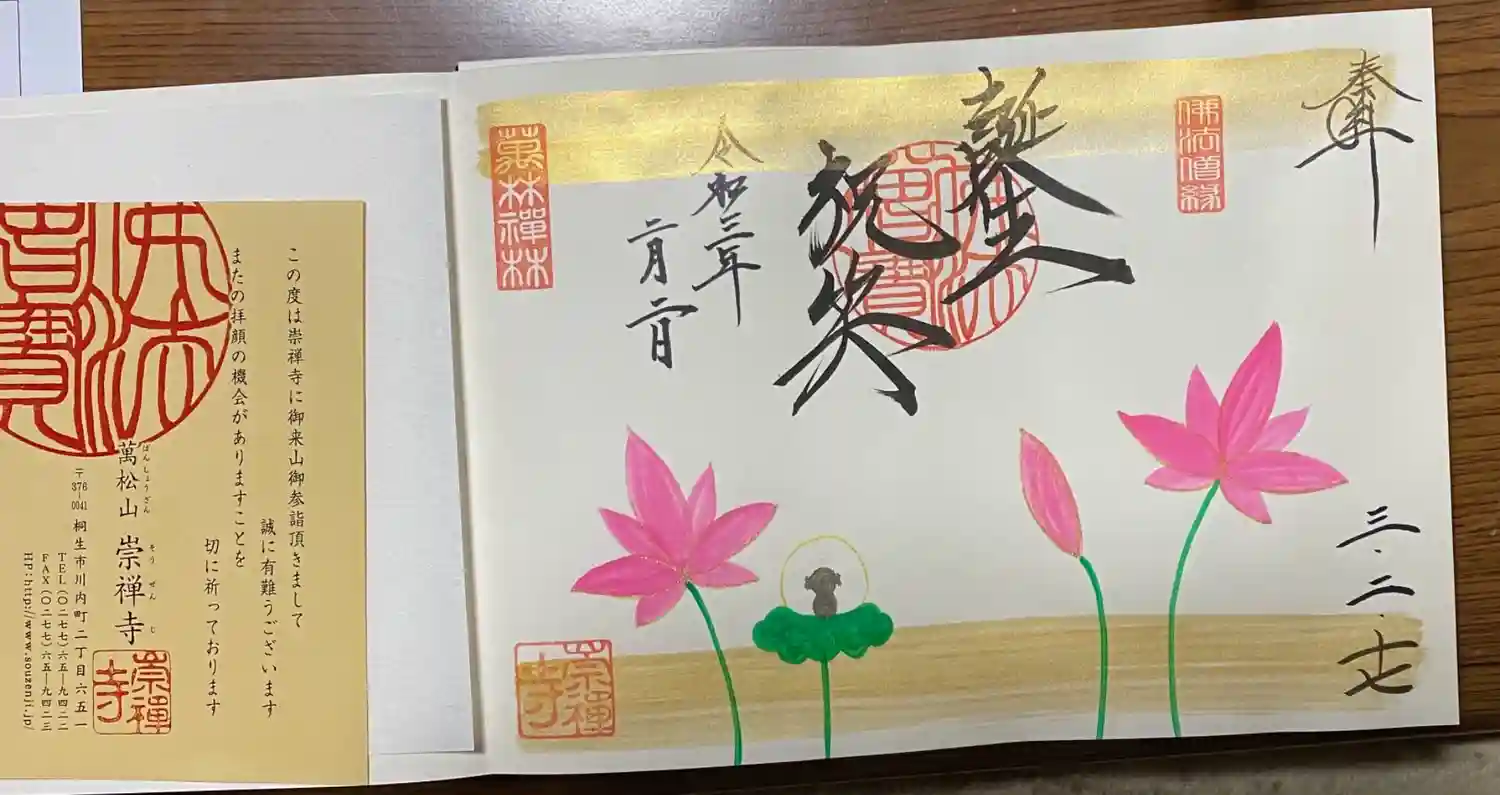 奉拝
三・二・十七
佛法僧縁
誕生
祝笑
佛法僧寶
令和三年
二月二日
萬松禪林
崇禅寺
この度は崇禅寺に御来山御参詣頂きまして
誠に有難うございます
またの拝顔の機会がありますことを
切に祈っております
萬松山 崇禅寺
ばんしょうざん そうぜんじ
崇禅寺
〒376-0041 桐生市川内町二丁目六五一
TEL(〇二七七)六五―九四二二
FAX(〇二七七)六五―九四二三
HP:http://www.souzenji.jp/